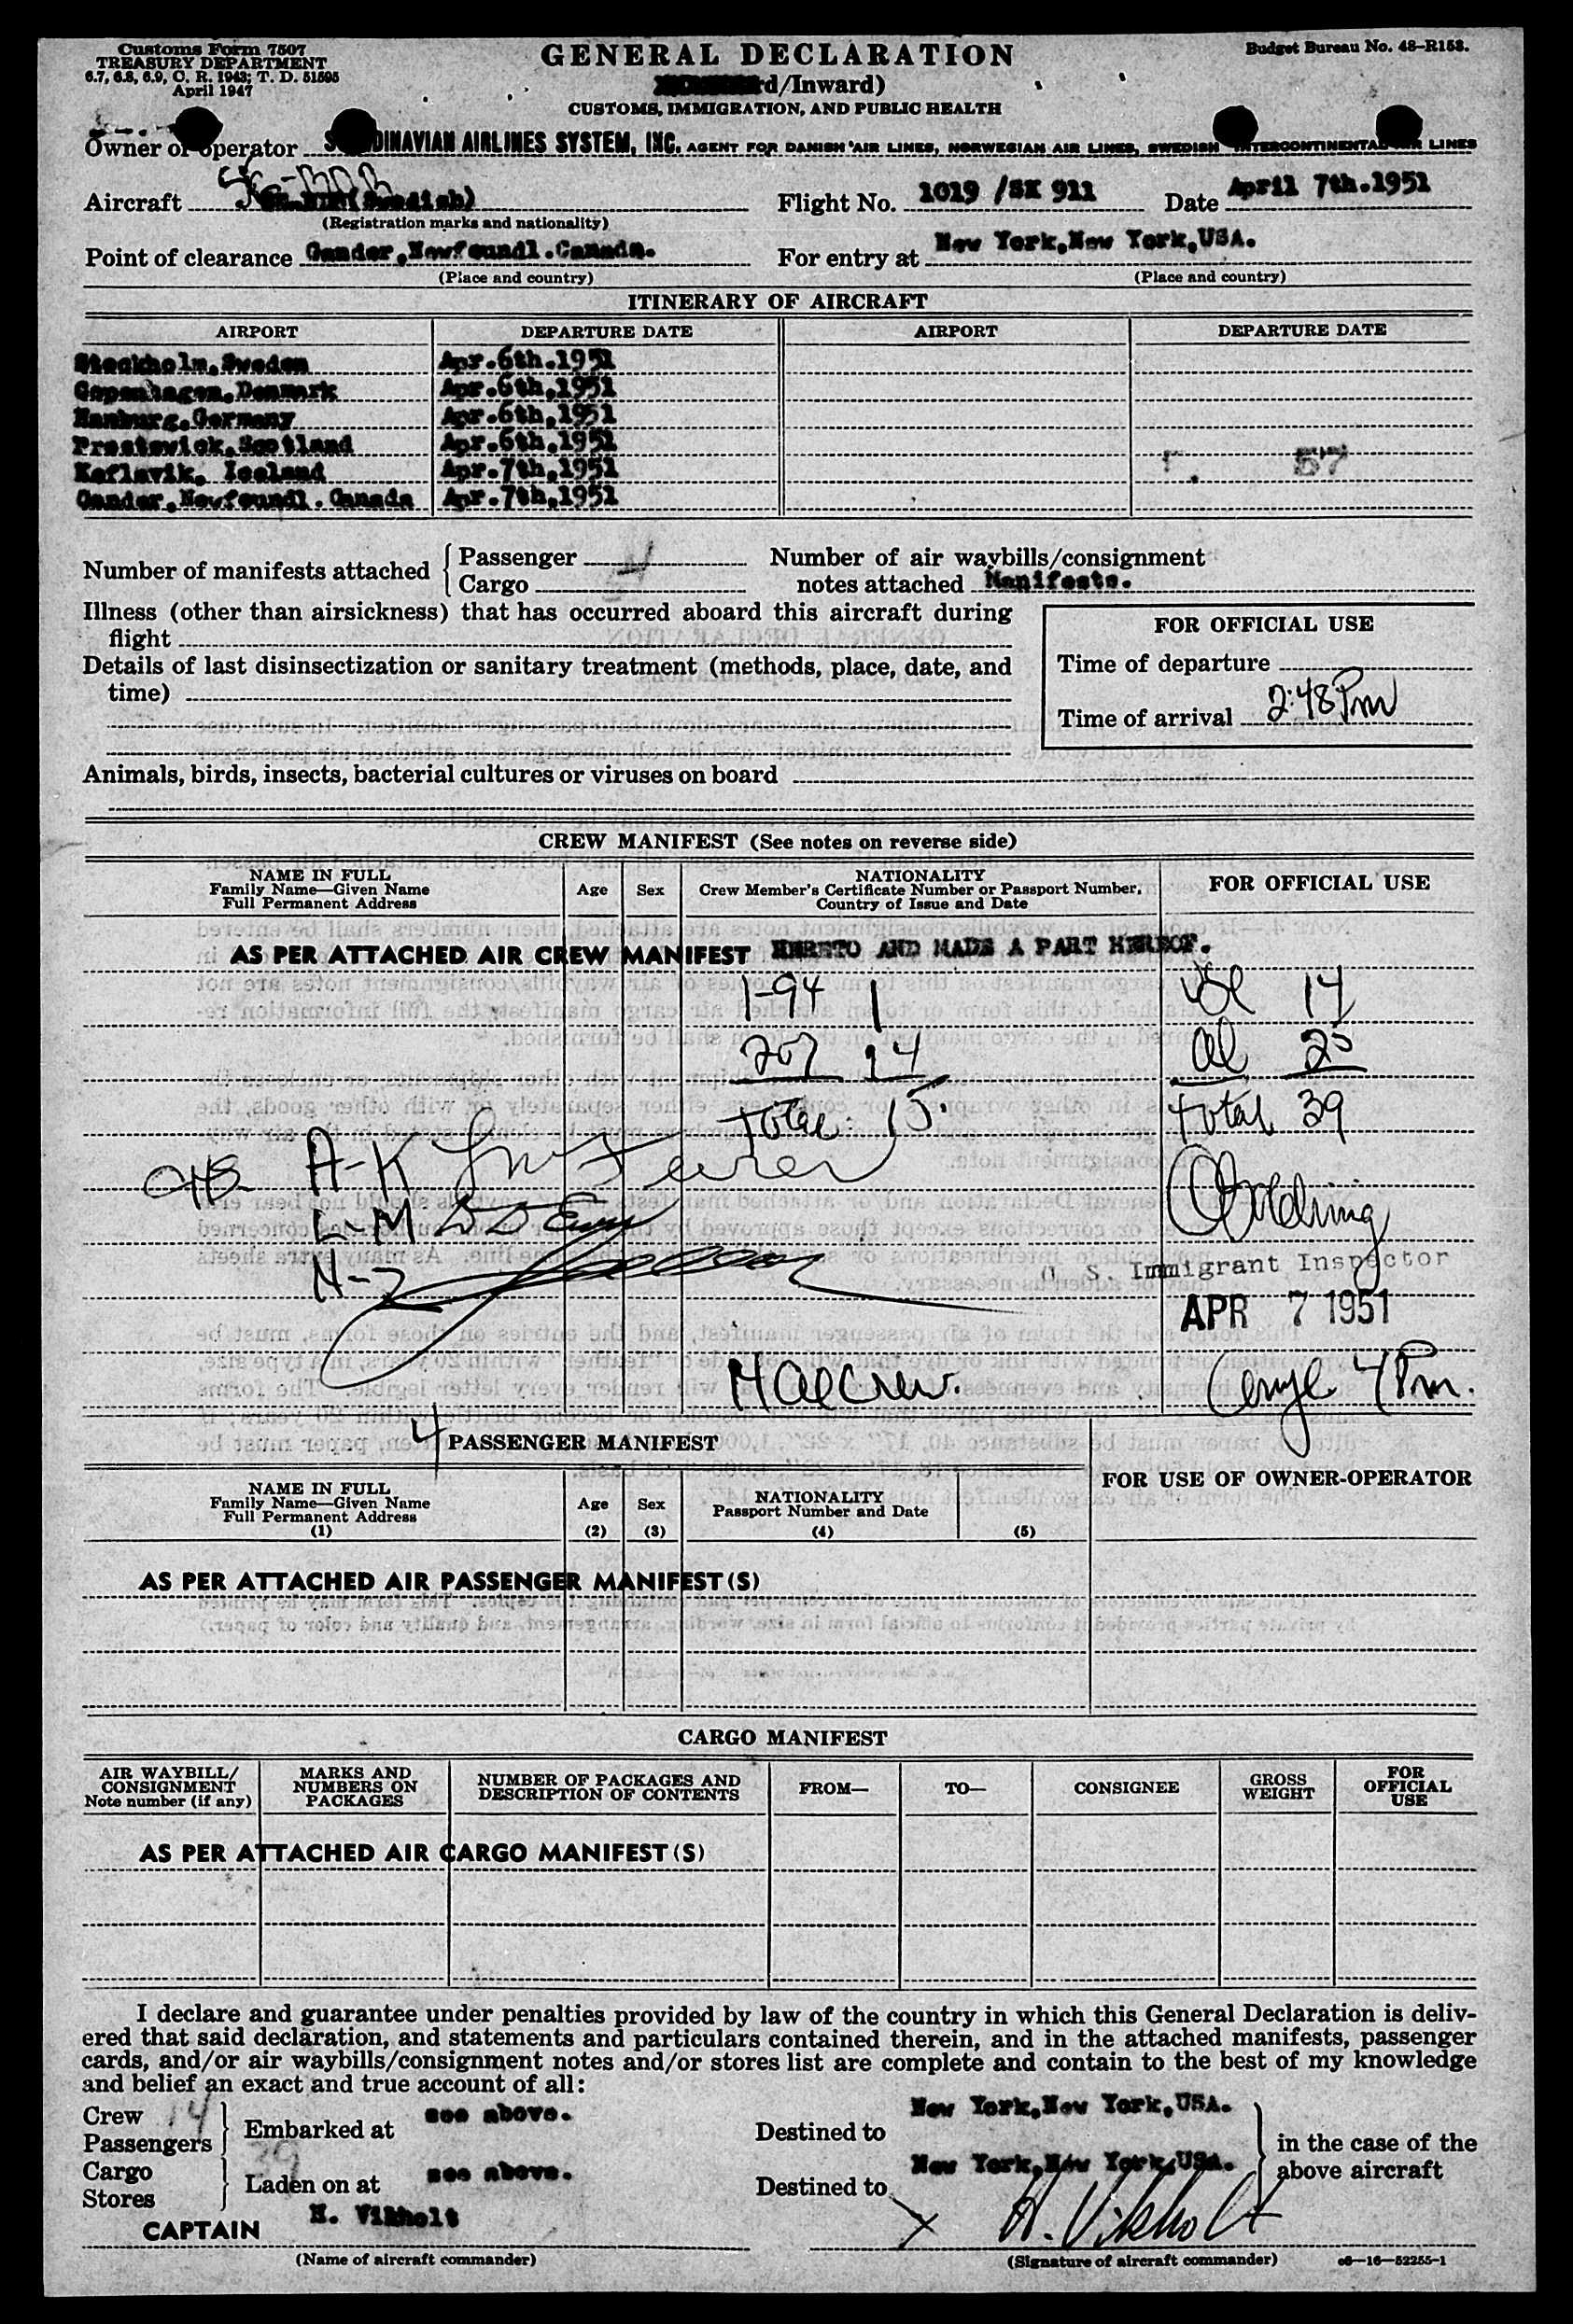 Customs Form 7507
TREASURY DEPARTMENT
6.7, 6.8, 6.9, C. R. 1943; T. D. 51595
April 1947
GENERAL DECLARATION
d/Inward)
CUSTOMS, IMMIGRATION, AND PUBLIC HEALTH
Budget Bureau No. 48-R153.
Owner or operator DINAVIAN AIRLINES SYSTEM, INC. AGENT FOR DANISH AIR LINES, NORWEGIAN AIR LINES, SWEDISH INTERCONTINENTAL AIR LINES
Aircraft (Swedish) Flight No. 1019 /SK 911 Date April 7th.1951
(Registration marks and nationality)
Point of clearance Gander,Newfoundl.Canada. For entry at New York,New York,USA.
(Place and country) (Place and country)
ITINERARY OF AIRCRAFT
AIRPORT DEPARTURE DATE AIRPORT DEPARTURE DATE
Stockholm,Sweden Apr.6th.1951
Copenhagen,Denmark Apr.6th,1951
Hamburg,Germany Apr.6th,1951
Prestwick,Scotland Apr.6th,1951
Keflavik, Iceland Apr.7th,1951
Gander,Newfoundl.Canada Apr.7th,1951
57
Number of manifests attached Passenger 4 Number of air waybills/consignment
Cargo notes attached Manifests.
Illness (other than airsickness) that has occurred aboard this aircraft during
flight
Details of last disinsectization or sanitary treatment (methods, place, date, and
time)
FOR OFFICIAL USE
Time of departure
Time of arrival 2:48 Pm
Animals, birds, insects, bacterial cultures or viruses on board
CREW MANIFEST (See notes on reverse side)
NAME IN FULL
Family Name—Given Name
Full Permanent Address
Age Sex
NATIONALITY
Crew Member's Certificate Number or Passport Number,
Country of Issue and Date
FOR OFFICIAL USE
AS PER ATTACHED AIR CREW MANIFEST HERETO AND MADE A PART HEREOF.
1-94 1 14
207 14 al 25
Total 15. total 39
A-K
L-M
N-Z
U. S. Immigrant Inspector
APR 7 1951
4 Pm.
4 PASSENGER MANIFEST
NAME IN FULL
Family Name—Given Name
Full Permanent Address
(1)
Age
(2)
Sex
(3)
NATIONALITY
Passport Number and Date
(4) (5)
FOR USE OF OWNER-OPERATOR
AS PER ATTACHED AIR PASSENGER MANIFEST(S)
CARGO MANIFEST
AIR WAYBILL/
CONSIGNMENT
Note number (if any)
MARKS AND
NUMBERS ON
PACKAGES
NUMBER OF PACKAGES AND
DESCRIPTION OF CONTENTS
FROM— TO— CONSIGNEE
GROSS
WEIGHT
FOR
OFFICIAL
USE
AS PER ATTACHED AIR CARGO MANIFEST(S)
I declare and guarantee under penalties provided by law of the country in which this General Declaration is deliv-
ered that said declaration, and statements and particulars contained therein, and in the attached manifests, passenger
cards, and/or air waybills/consignment notes and/or stores list are complete and contain to the best of my knowledge
and belief an exact and true account of all:
Crew 14
Passengers 39
Embarked at see above. Destined to New York,New York,USA.
Cargo
Stores
Laden on at see above. Destined to New York,New York,USA.
in the case of the
above aircraft
CAPTAIN H. Vikholt H. Vikholt
(Name of aircraft commander) (Signature of aircraft commander) 16-52255-1